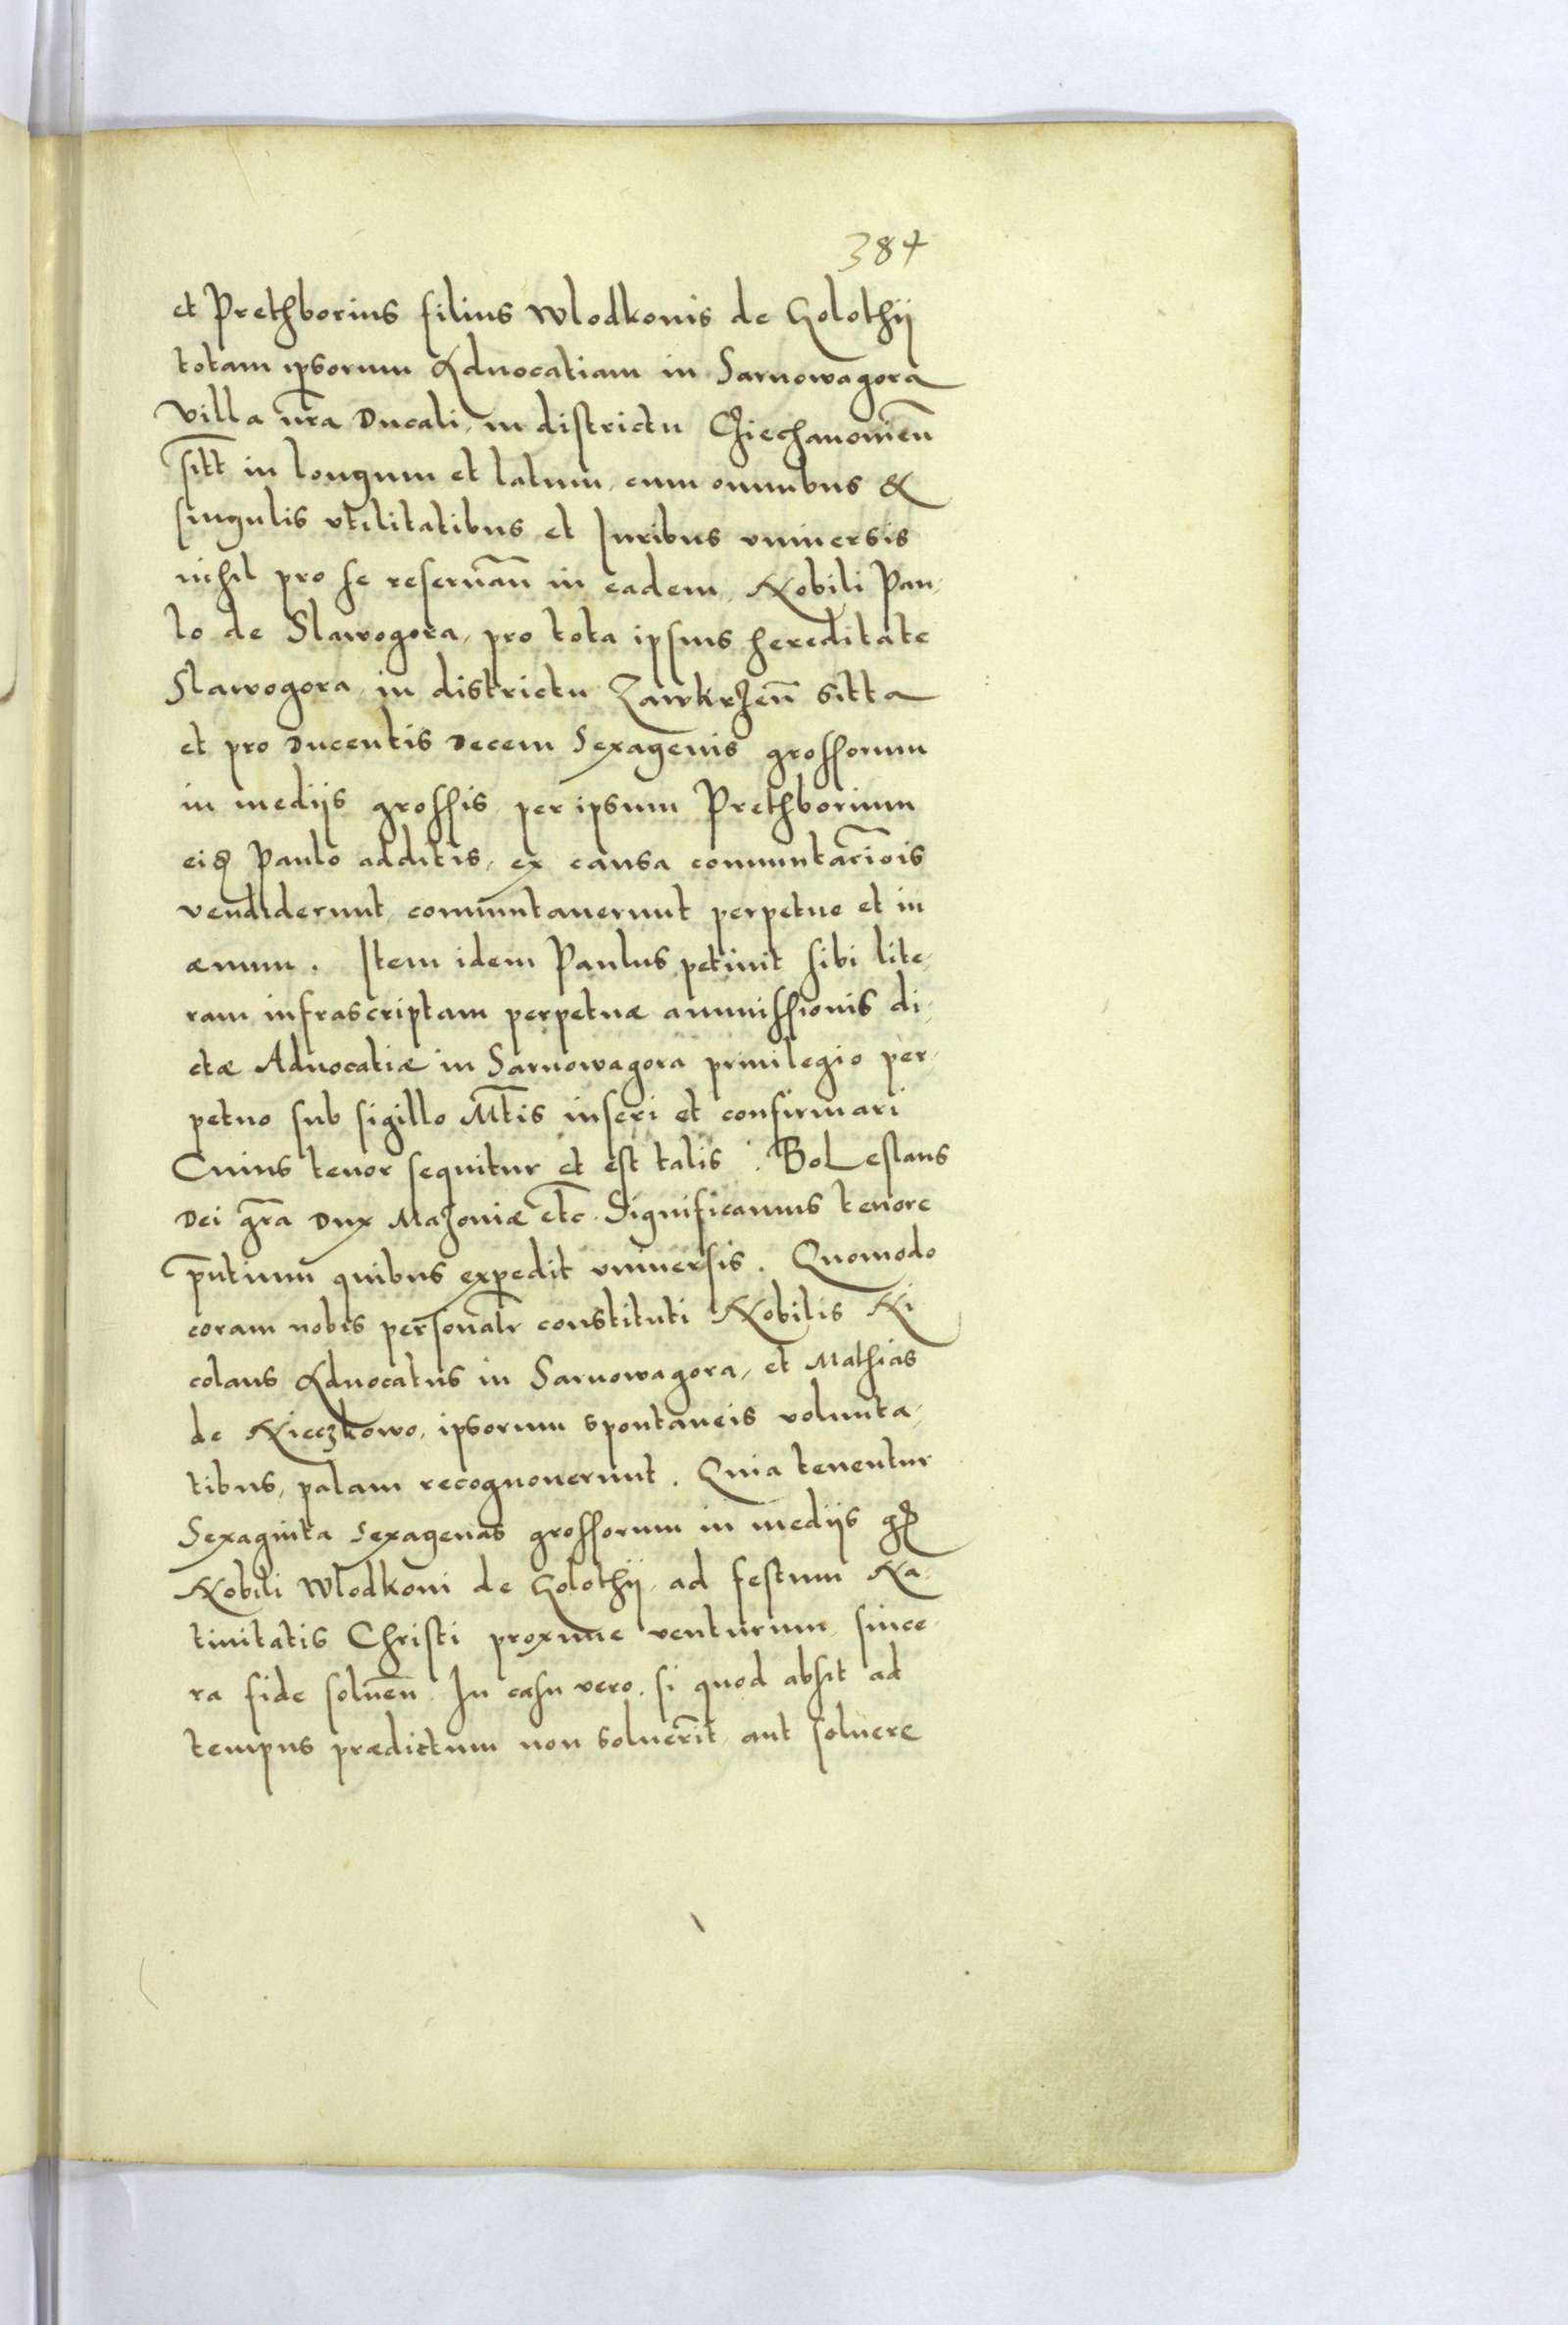 384
et Prethborius filius Wlodkonis de Golothij
totam ipsorum Aduocatiam in Sarnowagora
villa nr̃a Ducali, in districtu Czięchanowieñ
sitt̃ in longum et latum, cum omnibus &
singulis vtilitatibus et Iuribus vniuersis
nihil pro se reseruañ in eadem, Nobili Pau-
lo de Slawogora, pro tota ipsius hereditate
Slawogora in districtu Zawkrzeñ sitta
et pro Ducentis Decem Sexagenis grossorum
in medijs grossis per ipsum Prethborium
eidē Paulo additis, ex causa comutac̃iois
vendiderunt, comutauerunt perpetue et in
æuum. Item idem Paulus petiuit sibi lite-
ram infrascriptam perpetuæ ammissionis di-
ctæ Aduocatiæ in Sarnowagora priuilegio per-
petuo sub sigillo Mt̃is inseri et confirmari
Cuius tenor sequitur et est talis. BoLeslaus
Dei gr̃a Dux Mazouiæ etc̃. Significamus tenore
p̃ntium quibus expedit vniuersis. Quomodo
coram nobis personalr̃ constituti Nobilis Ni
colaus Aduocatus in Sarnowagora, et Mathias
de Nieczkowo, ipsorum spontaneis volunta-
tibus, palam recognouerunt. Quia tenentur
Sexaginta Sexagenas grossorum in medijs gr̃
Nobili Wlodkoni de Golothij, ad festum Na-
tiuitatis Christi proxime venturum, since-
ra fide solueñ. In casu vero, si quod absit ad
tempus prædictum non soluer̃it, aut soluere